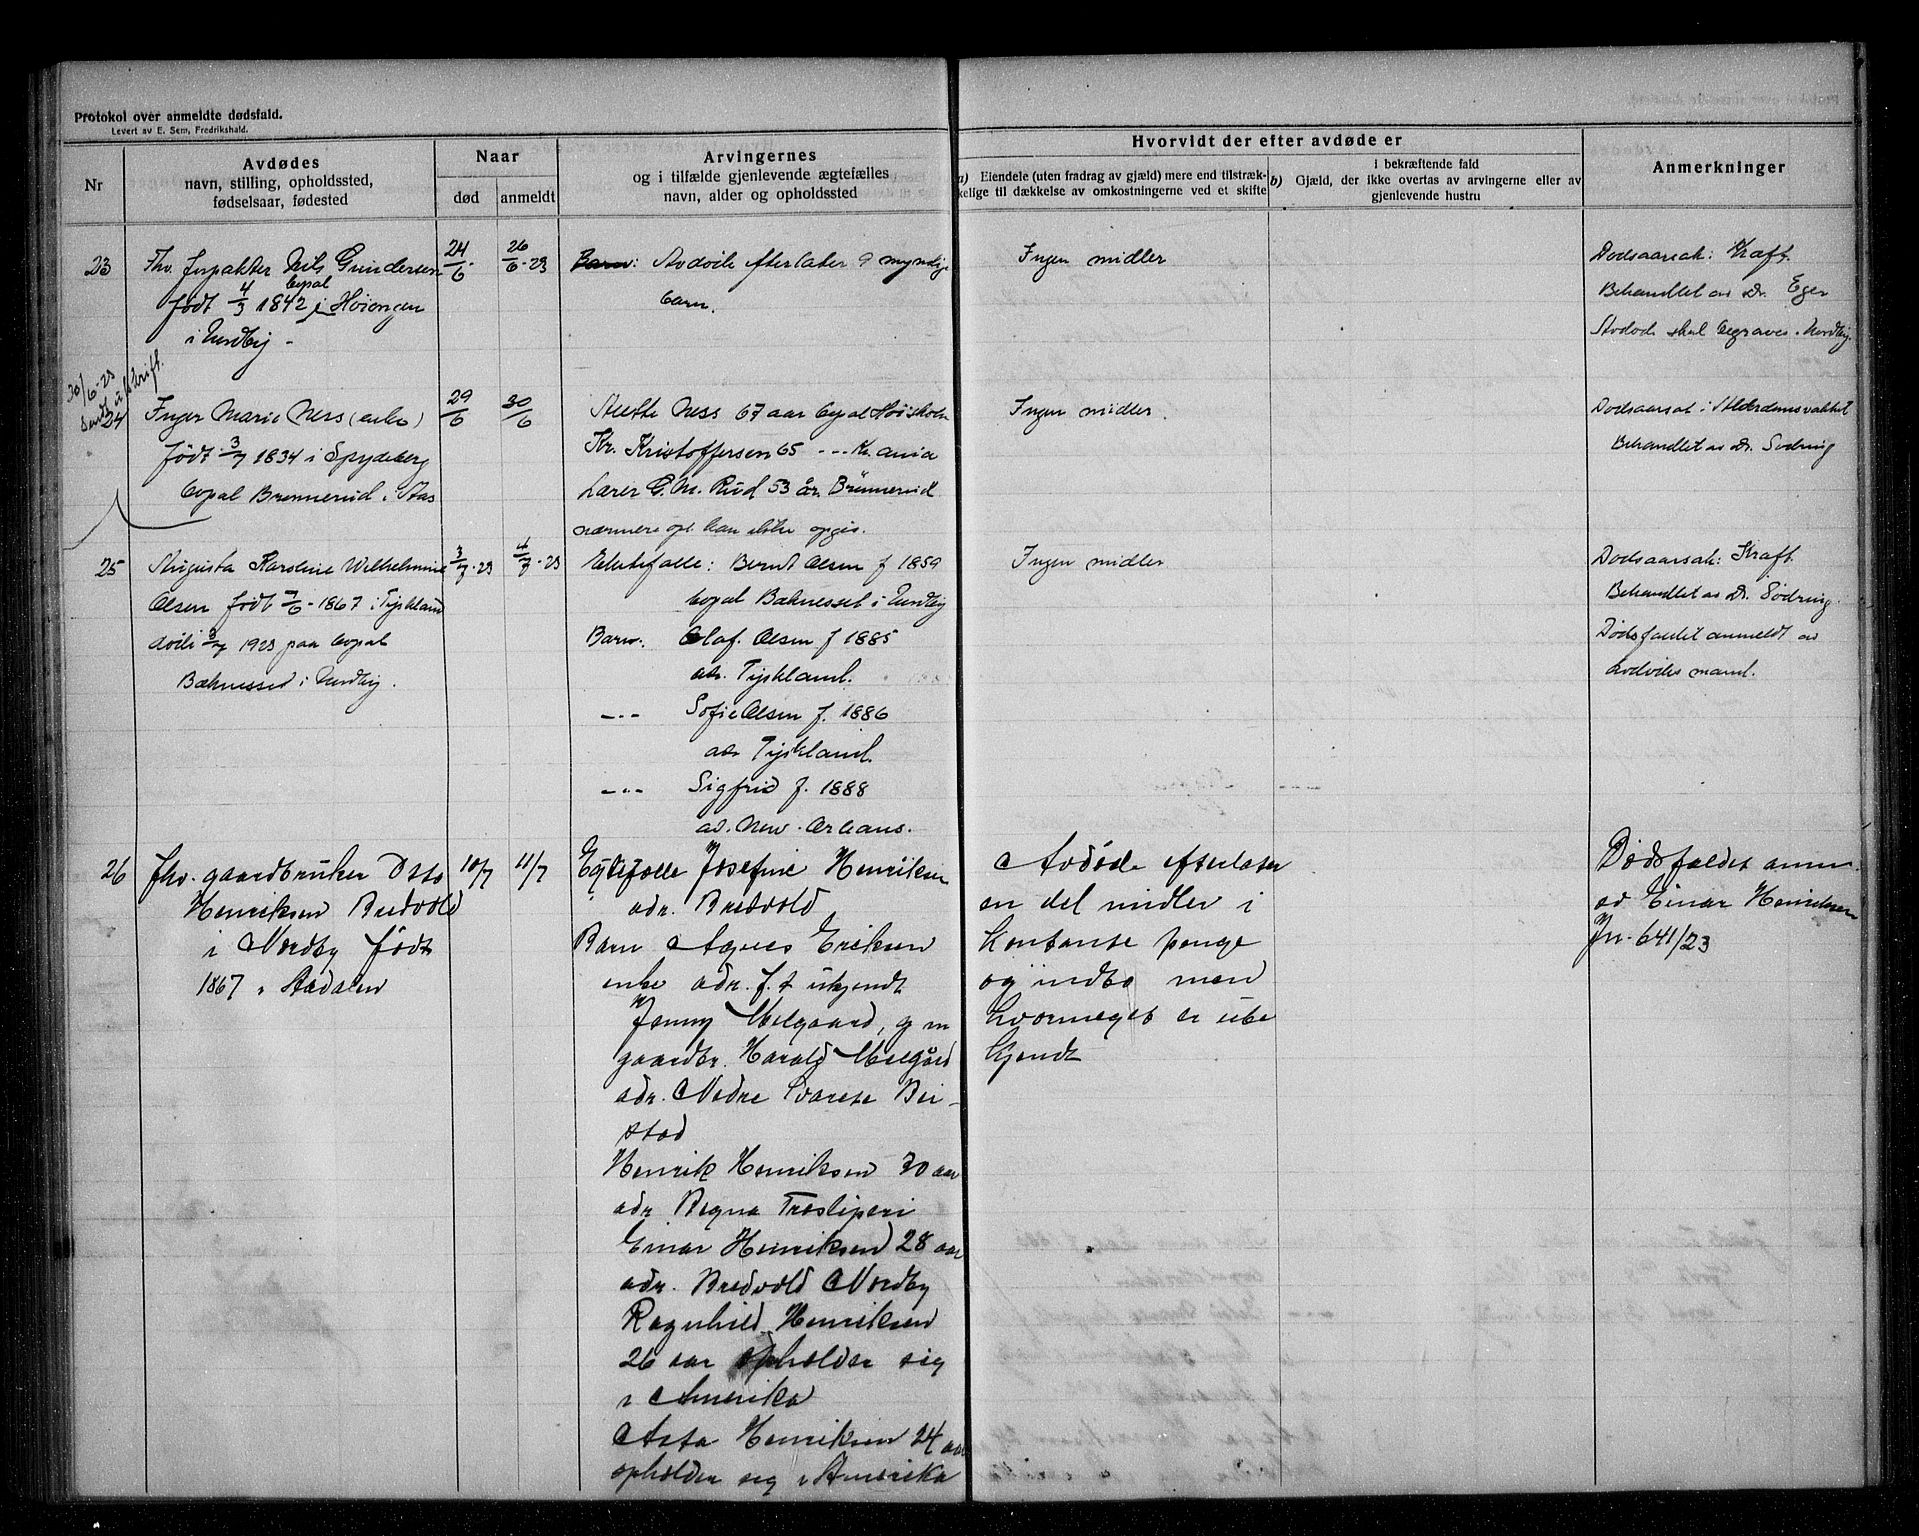 Protokol over anmeldte dødsfald.
Levert av E. Sem, Fredrikshald.
Nr
Avdødes
navn, stilling, opholdssted,
fødselsaar, fødested
Naar
død
anmeldt
Arvingernes
og i tilfælde gjenlevende ægtefælles
navn, alder og opholdssted
Hvorvidt der efter avdøde er
a) Eiendele (uten fradrag av gjæld) mere end tilstræk-
kelige til dækkelse av omkostningerne ved et skifte
i bekræftende fald
b) Gjæld, der ikke overtas av arvingerne eller av
gjenlevende hustru
Anmerkninger
23
Fhv. Inspaktør Nils Gundersen
født 4/3 1842 i
bopal
i Nordby -
24/6
26/6-23
Barn: Avdøde efterlater 9 myndige
barn.
Ingen midler
Dødsaarsak: Kræft.
Behandlet av Dr. Eger
Avdøde skal begraves i Nordby.
30/6-23
Sendt utskrift.
24
Inger Marie Ness (enke)
født 3/7 1834 i Spydeberg
bopal Brønnerud i Aas
29/6
30/6
Ness 67 aar bopal
Kr. Kristoffersen 65 -"- Kr.ania
Lærer G. M. Rud 53 år. Brønnerud
nærmere opl. kan ikke opgis.
Ingen midler.
Dødsaarsak: Alderdomssvakhet
Behandlet av Dr. Sødring
25
Augusta Karoline Wilhelmine
Olsen født 7/6-1867 i Tyskland
døde 3/7 1923 paa bopal
Bæknesset i Nordby.
3/7-23
4/7-23
Ektefælle: Bernt Olsen f 1859
bopal Bæknesset i Nordby
Barn: Olaf Olsen f 1885
adr. Tyskland.
-"- Sofie Olsen f. 1886
adr Tyskland.
-"- Sigfrid f. 1888
ad. New-Orleans.
Ingen midler
Dødsaarsak: Kræft.
Behandlet av Dr. Sødring.
Dødsfaldet anmeldt av
avdødes mand.
26
fhv. gaardbruker
Henriksen Bredvold
i Nordby født
1867 i Aadalen
10/7
11/7
Egtefælle Josefine Henriksen
adr. Bredvold
Barn Agnes Eriksen
enke adr. f. t ukjendt
Jenny Melgaard, g m
gaardbr. Harald Melgård
adr. Nedre
stad
Henrik Henriksen 30 aar
adr Begna Træsliperi
Einar Henriksen 28 aar
adr. Bredvold Nordby
Ragnhild Henriksen
26 aar opholder sig
i Amerika
Asta Henriksen 24 aar
opholder sig i Amerika
Avdøde efterlater
en del midler i
kontante penge
og indbo men
hvormeget er ube
kjendt
Dødsfaldet anm.
av Einar Henriksen
Jn. 641/23